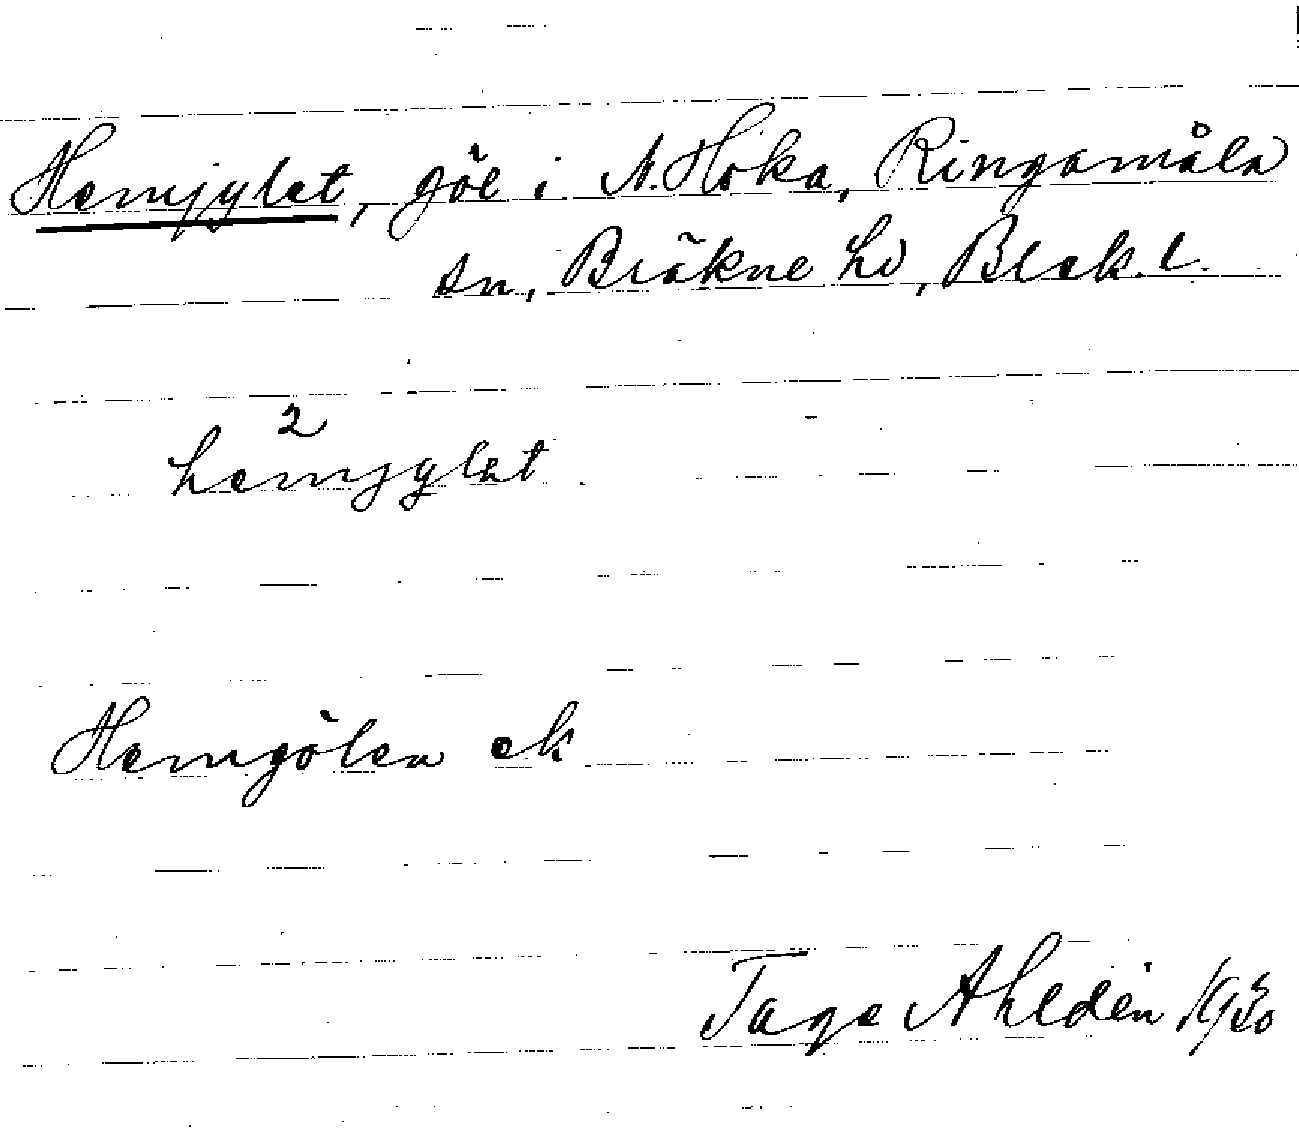 Hemjylet, göl i N. Hoka, Ringamåla
sn, Bräkne hd, Blek. l.
2
hemjylet
Hemgölen ek
Tage Ahldén 1930